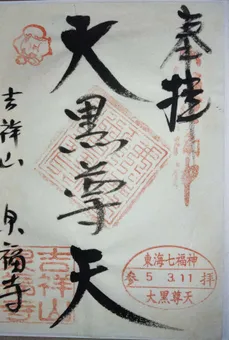 奉拝
大黒尊天
吉祥山 東福寺
東海七福神
参 5 3.11 拝
大黒尊天
吉祥山